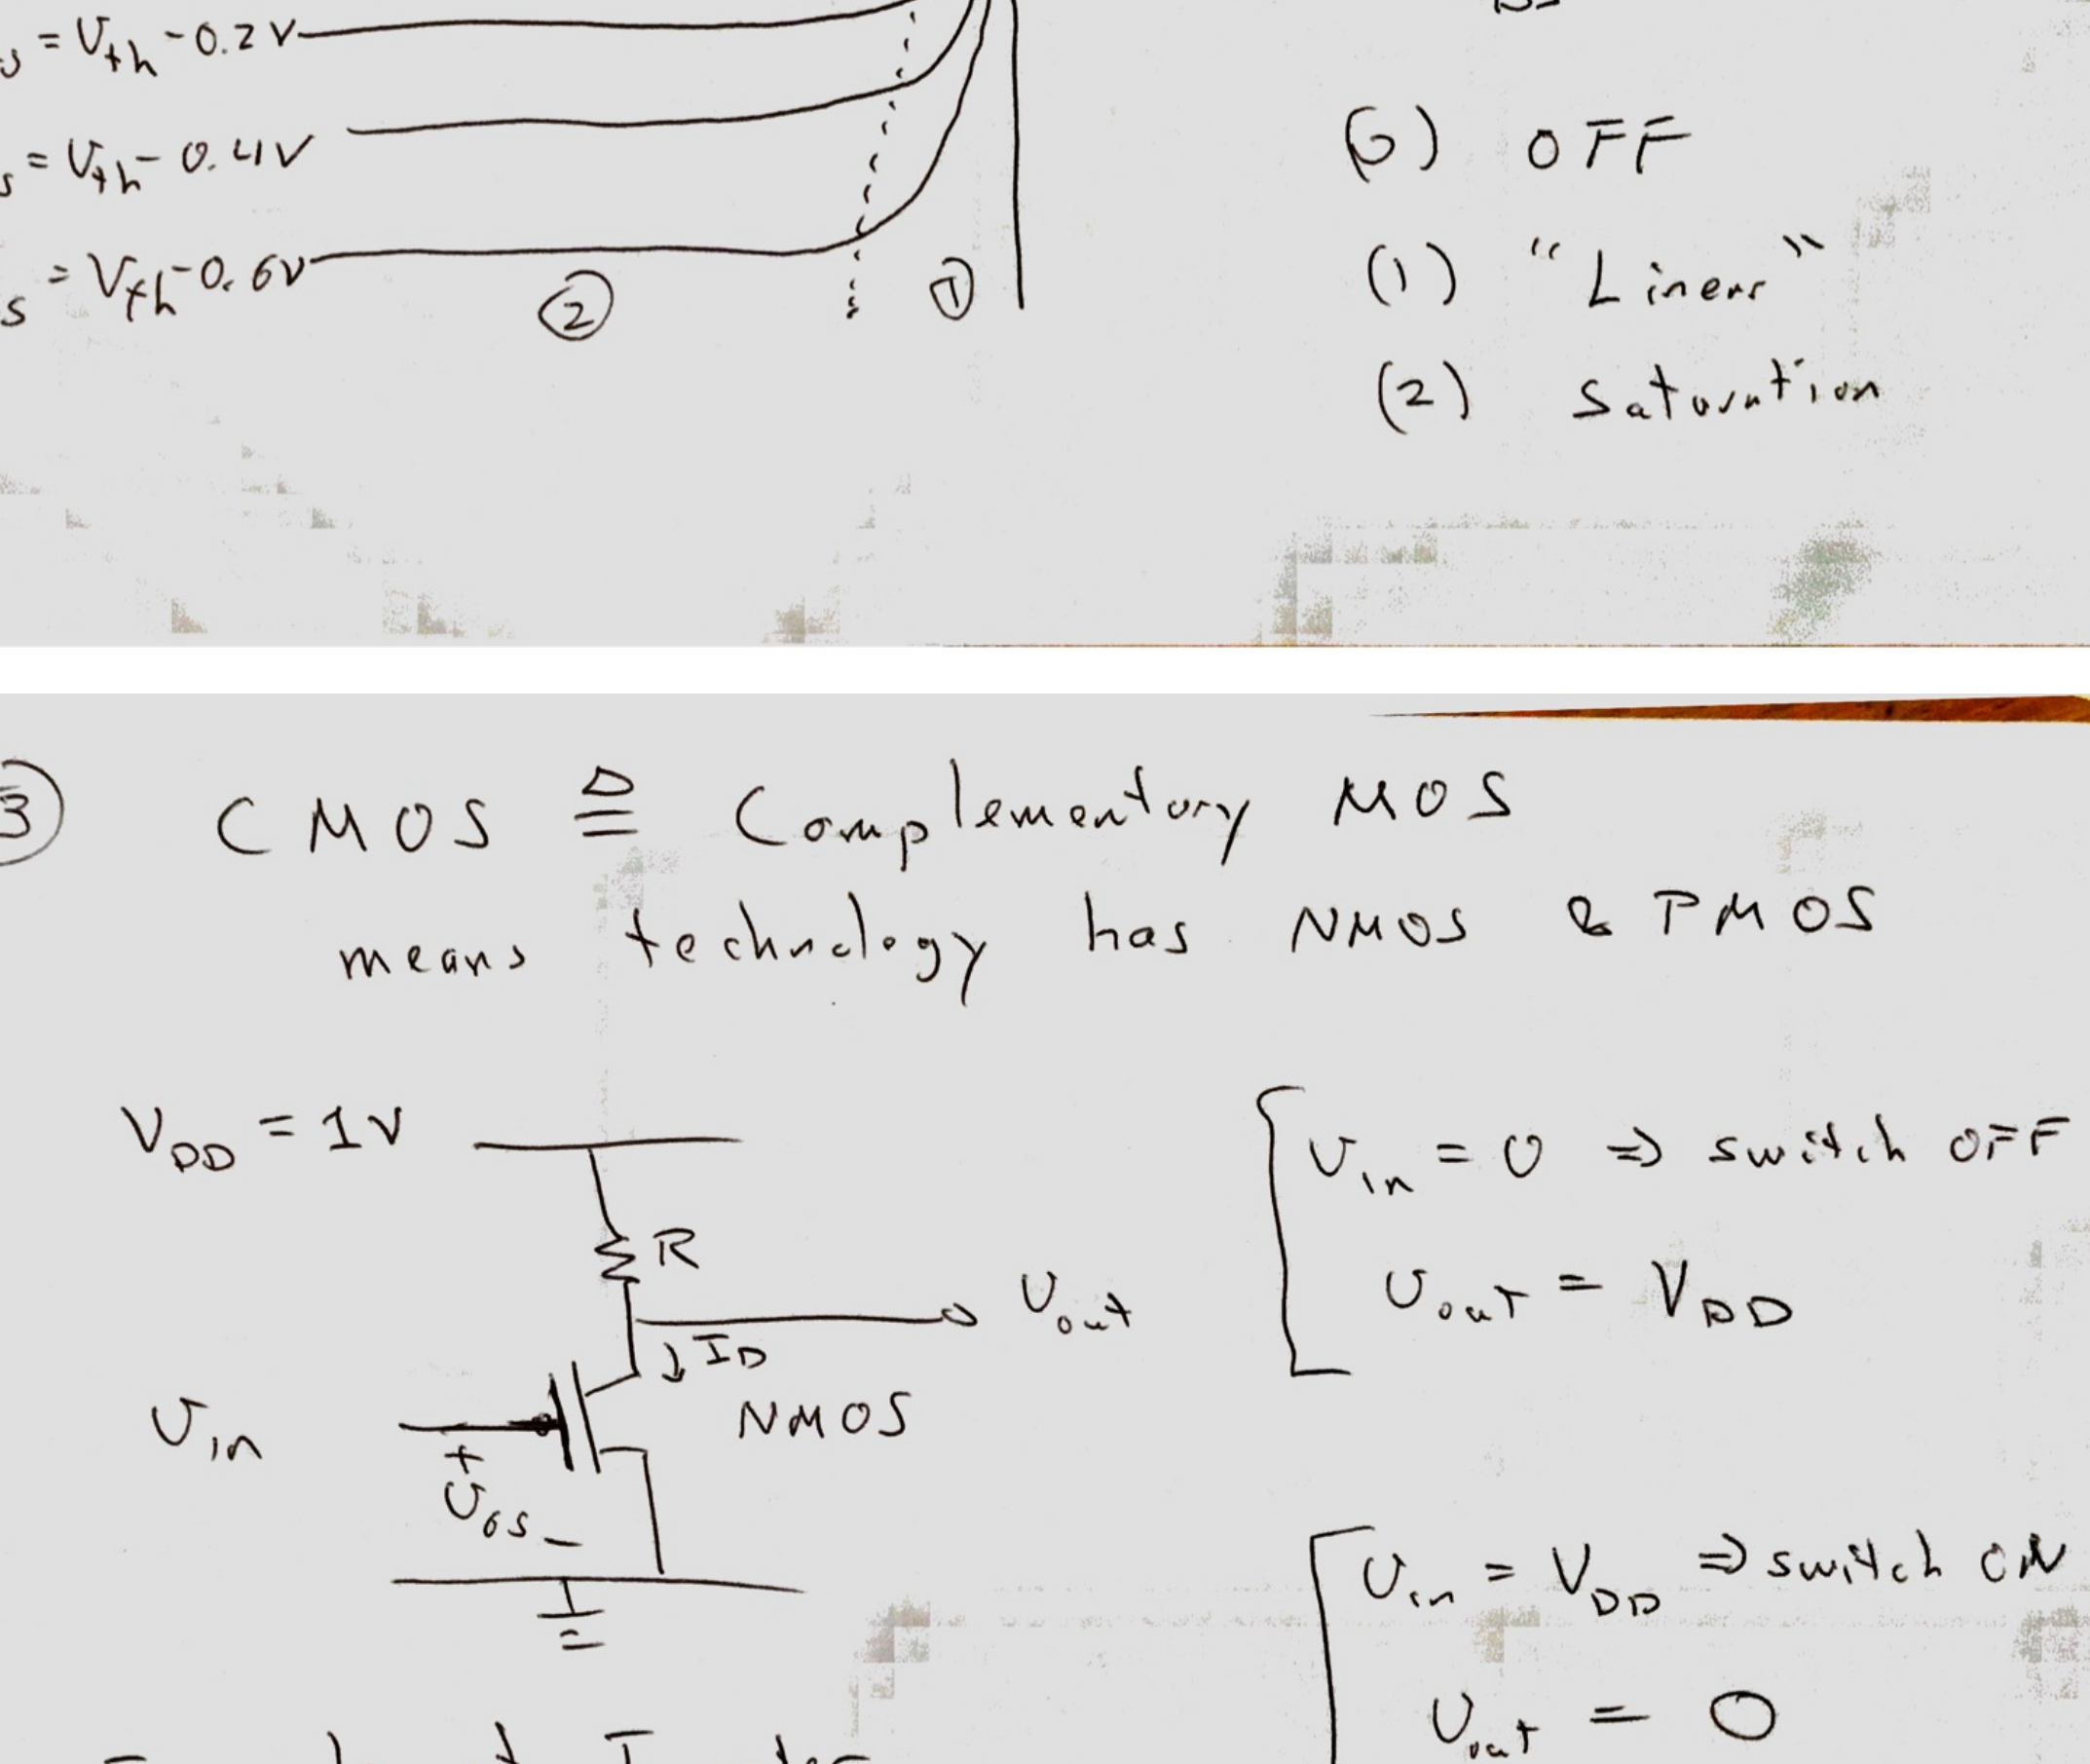 s = Vth - 0.2V
s = Vth - 0.4V
s = Vth - 0.6V
② ①
(0) OFF
(1) "Linear"
(2) Saturation
③ CMOS ≜ Complementary MOS
means technology has NMOS & PMOS
VDD = 1V
R
Vout
↓ ID
NMOS
Vin
+
VGS
-
Vin = 0 ⇒ switch OFF
Vout = VDD
Vin = VDD ⇒ switch ON
Vout = 0